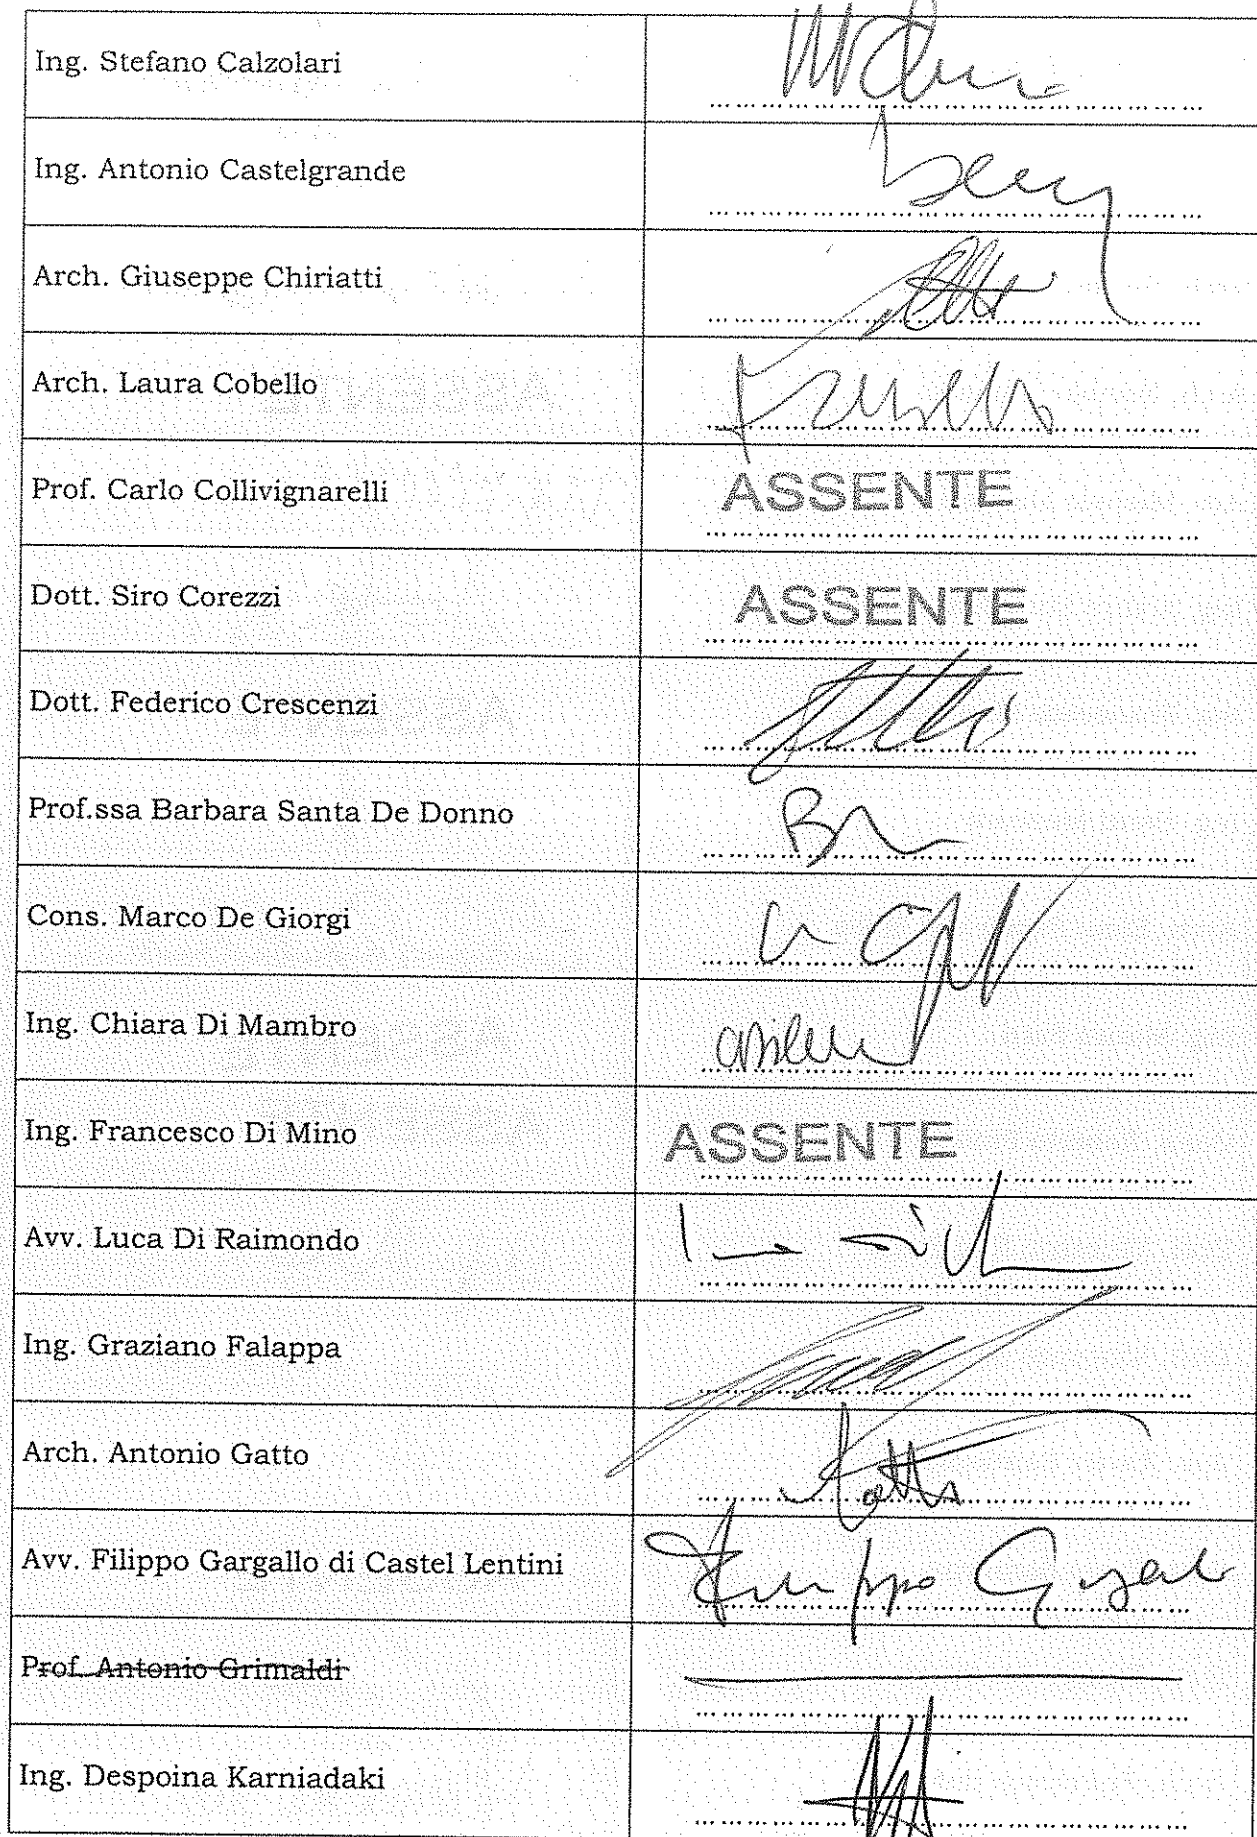 Ing. Stefano Calzolari
Ing. Antonio Castelgrande
Arch. Giuseppe Chiriatti
Arch. Laura Cobello
Prof. Carlo Collivignarelli ASSENTE
Dott. Siro Corezzi ASSENTE
Dott. Federico Crescenzi
Prof.ssa Barbara Santa De Donno
Cons. Marco De Giorgi
Ing. Chiara Di Mambro
Ing. Francesco Di Mino ASSENTE
Avv. Luca Di Raimondo
Ing. Graziano Falappa
Arch. Antonio Gatto
Avv. Filippo Gargallo di Castel Lentini
Prof. Antonio Grimaldi
Ing. Despoina Karniadaki